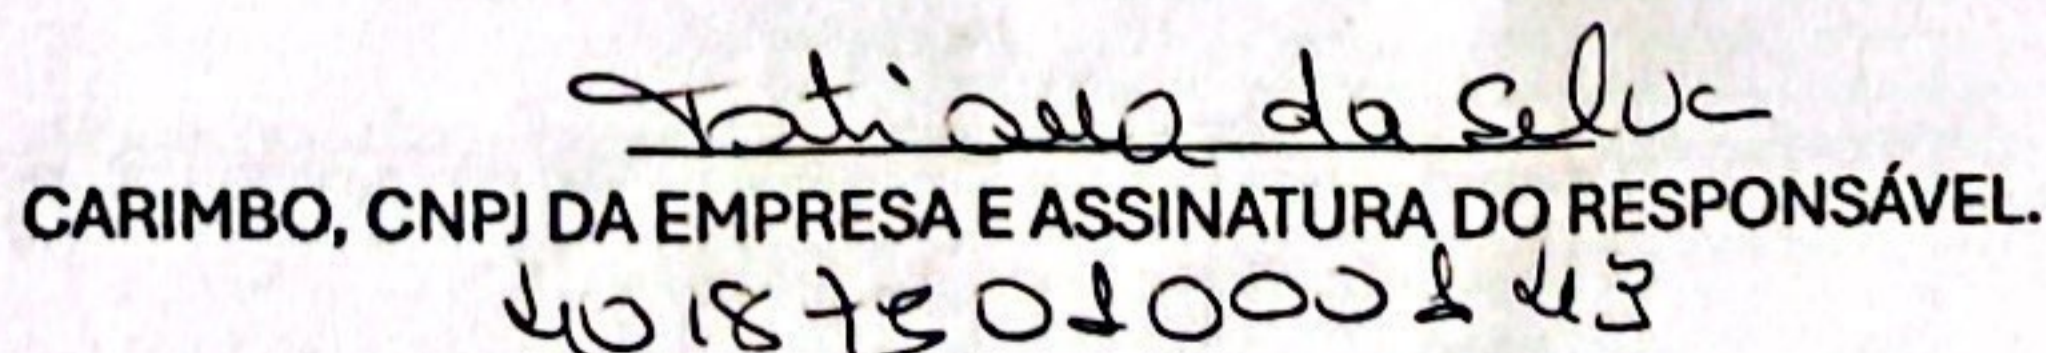 Tatiana da Silva
CARIMBO, CNPJ DA EMPRESA E ASSINATURA DO RESPONSÁVEL.
40187501000143